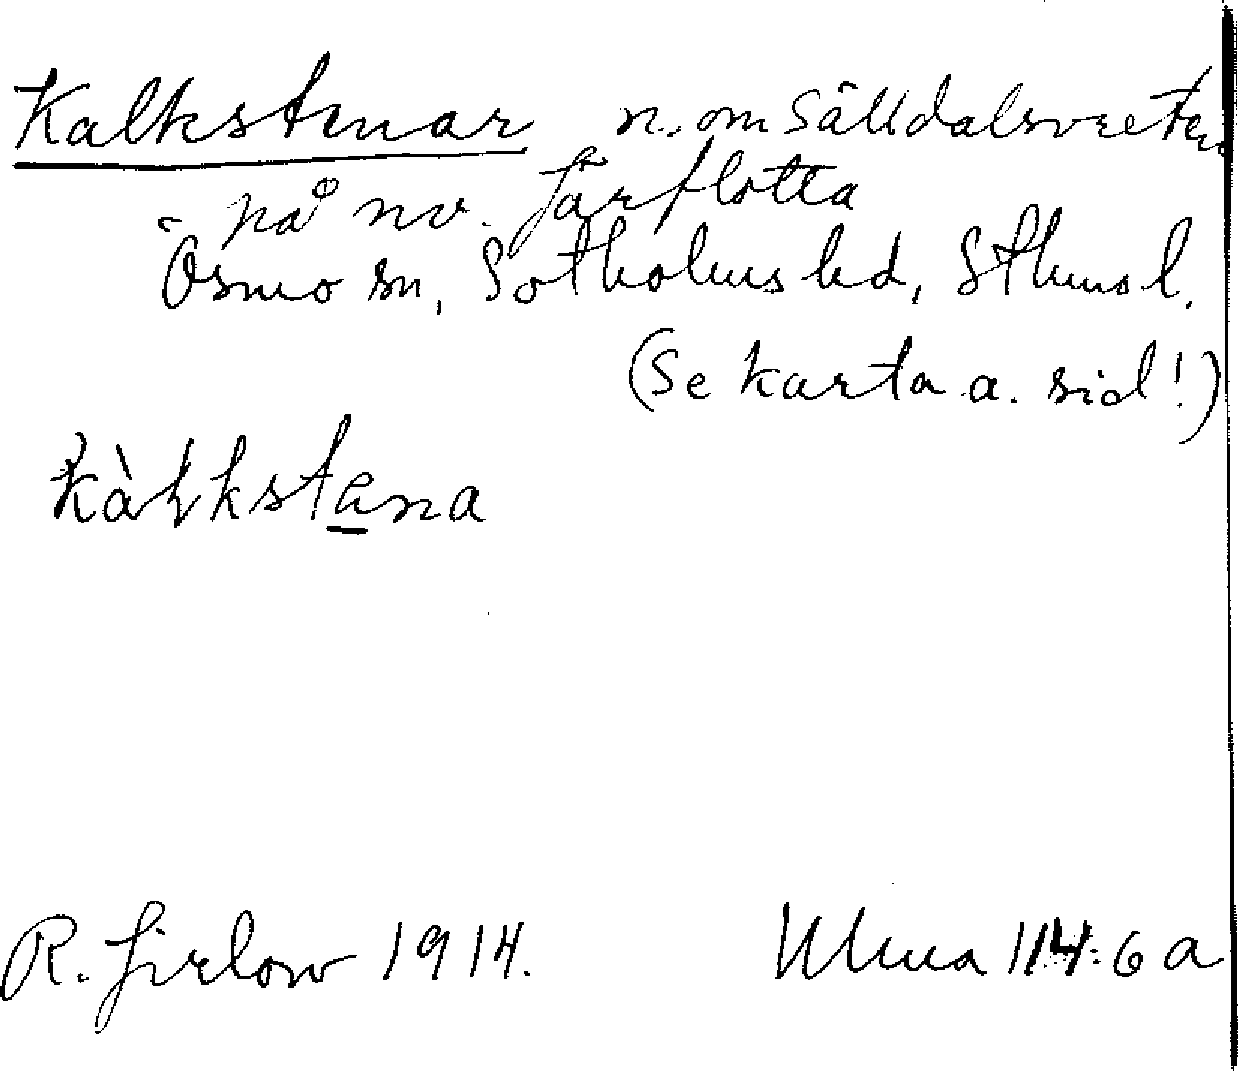 Kalkstenar n. om Sälldalsvreten
på nv. Järflotta
Ösmo sn, Sotholms hd, Sthms l.
(Se karta a. sid!)
kàłkstena
R. Jirlow 1914. Ulma 114:6 a